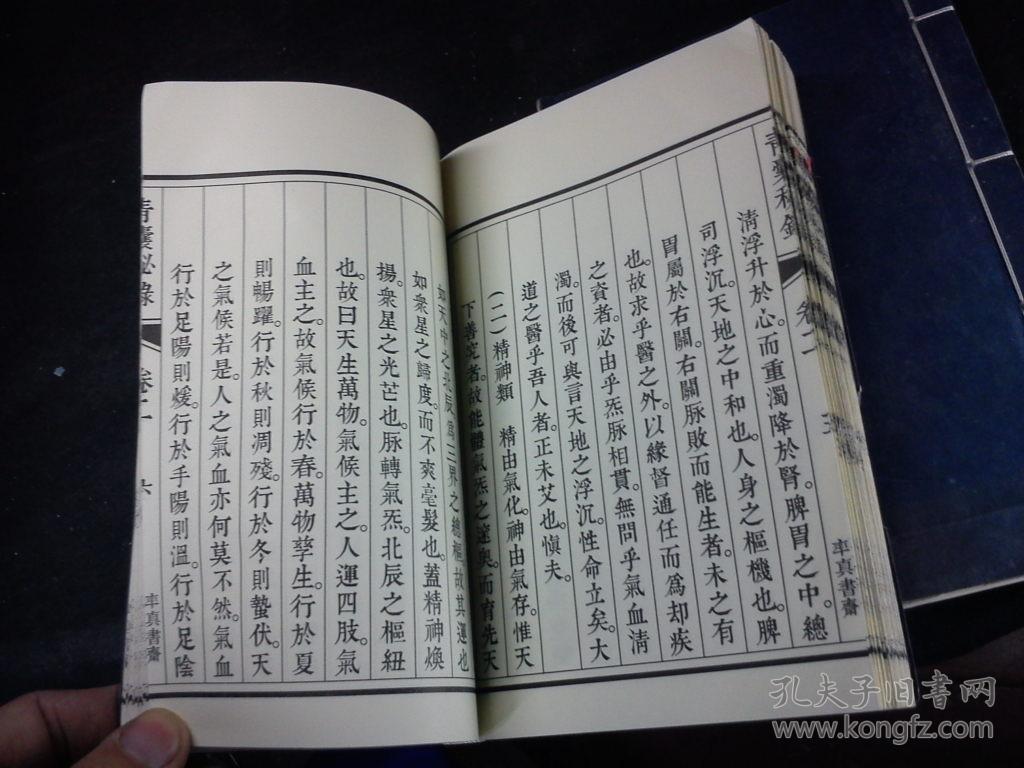 青囊秘錄 卷二
清浮升於心。而重濁降於腎。脾胃之中。總
司浮沉。天地之中和也。人身之樞機也。脾
胃屬於右關。右關脈敗而能生者。未之有
也。故求乎醫之外。以緣督通任而為却疾
之資者。必由乎炁脈相貫。無問乎氣血清
濁。而後可與言天地之浮沉。性命立矣。大
道之醫乎吾人者。正未艾也。慎夫。
(二)精神類 精由氣化。神由氣存。惟天
下善究者。故能體氣炁之邃奥。而育先天
率真書齋
如天中之北辰為三界之總樞。故其運也
如衆星之歸度。而不爽毫髮也。蓋精神煥
揚。衆星之光芒也。脈轉氣炁。北辰之樞紐
也。故曰天生萬物。氣候主之。人運四肢。氣
血主之。故氣候行於春。萬物孳生。行於夏
則暢躍。行於秋則凋殘。行於冬則蟄伏。天
之氣候若是。人之氣血亦何莫不然。氣血
行於足陽則煖。行於手陽則溫。行於足陰
青囊秘錄 卷二 六
率真書齋
孔夫子旧书网
www.kongfz.com